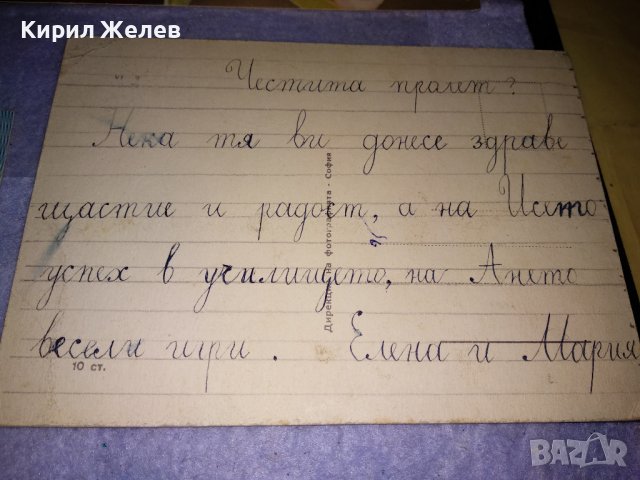 Кирил Желев
Честита пролет?
Нека тя ви донесе здраве
щастие и радост, а на Исето
успех в училището, на Ането
весели игри. Елена и Мария
10 ст.
Дирекция на фотографията - София
BAZAR